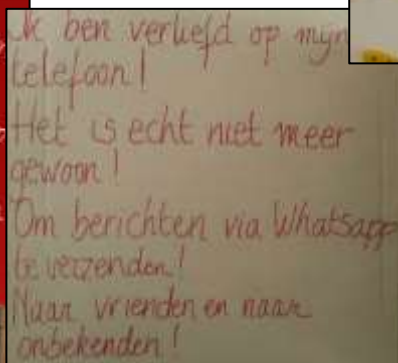 Ik ben verliefd op mijn
telefoon!
Het is echt niet meer
gewoon!
Om berichten via Whatsapp
te verzenden!
Naar vrienden en naar
onbekenden!